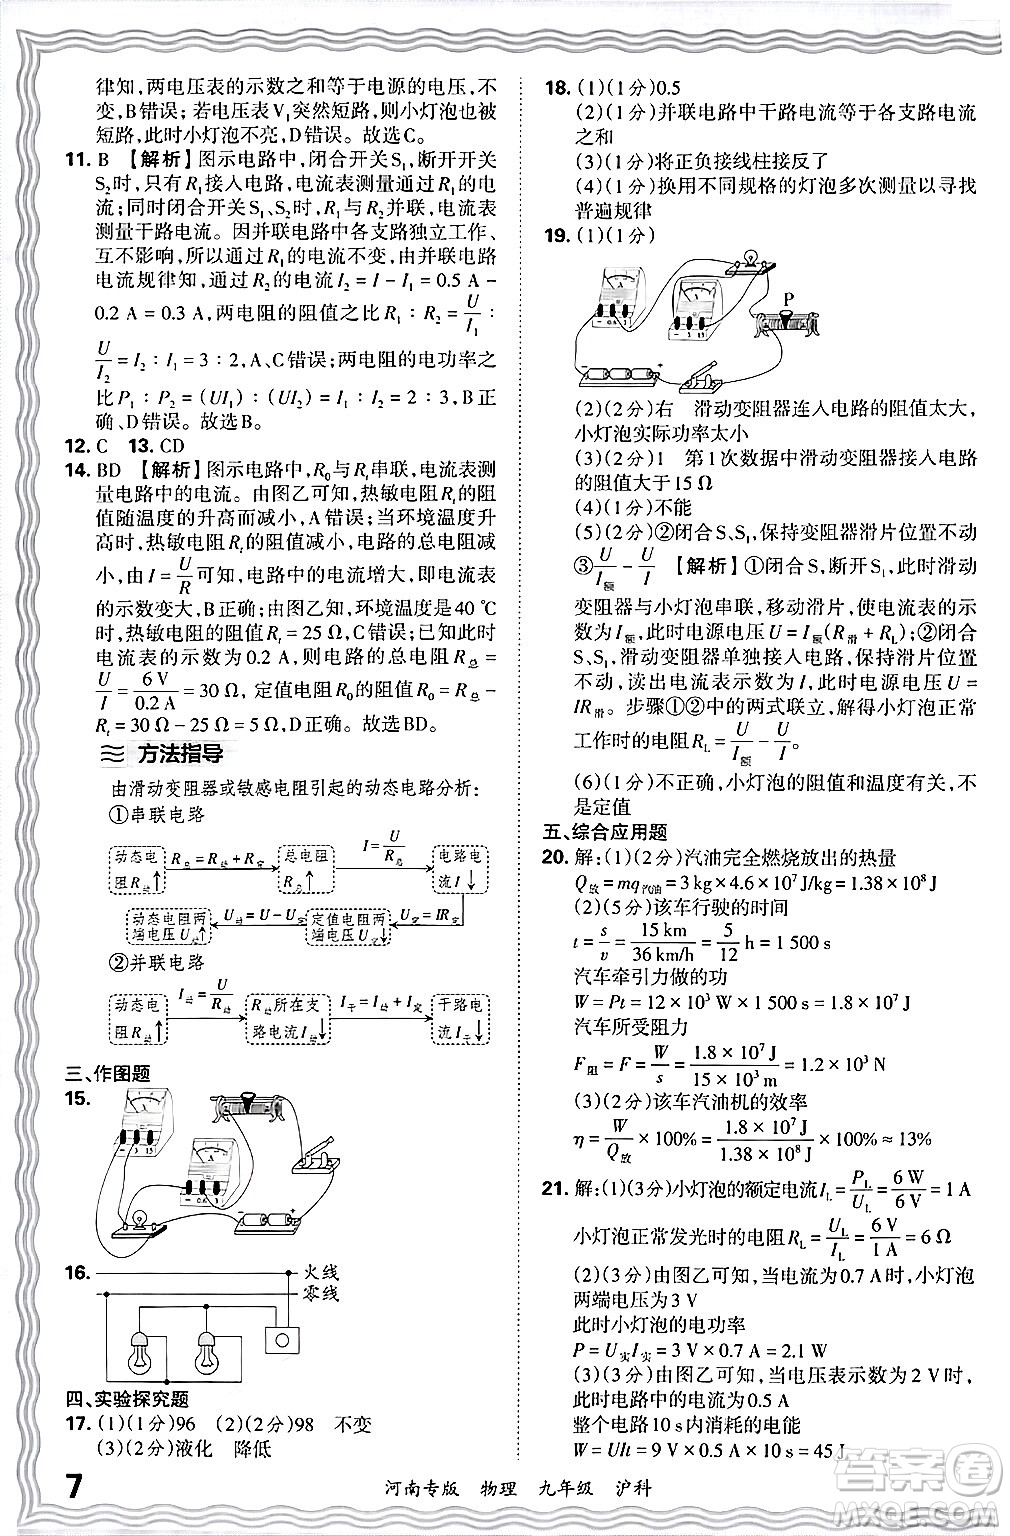 律知,两电压表的示数之和等于电源的电压,不
变,B错误;若电压表V₁突然短路,则小灯泡也被
短路,此时小灯泡不亮,D错误。故选C。
11. B 【解析】图示电路中,闭合开关S₁,断开开关
S₂时,只有R₁接入电路,电流表测量通过R₁的电
流;同时闭合开关S₁、S₂时,R₁与R₂并联,电流表
测量干路电流。因并联电路中各支路独立工作、
互不影响,所以通过R₁的电流不变,由并联电路
电流规律知,通过R₂的电流I₂=I-I₁=0.5 A-
0.2 A=0.3 A,两电阻的阻值之比R₁∶R₂=U/I₁∶
U/I₂=I₂∶I₁=3∶2,A、C错误;两电阻的电功率之
比P₁∶P₂=(UI₁)∶(UI₂)=I₁∶I₂=2∶3,B正
确、D错误。故选B。
12. C 13. CD
14. BD 【解析】图示电路中,R₀与Rₜ串联,电流表测
量电路中的电流。由图乙可知,热敏电阻Rₜ的阻
值随温度的升高而减小,A错误;当环境温度升
高时,热敏电阻Rₜ的阻值减小,电路的总电阻减
小,由I=U/R可知,电路中的电流增大,即电流表
的示数变大,B正确;由图乙知,环境温度为40 ℃
时,热敏电阻的阻值Rₜ=25 Ω,C错误;已知此时
电流表的示数为0.2 A,则电路的总电阻R总=
U/I=6 V/0.2 A=30 Ω,定值电阻R₀的阻值R₀=R总-
Rₜ=30 Ω-25 Ω=5 Ω,D正确。故选BD。
方法指导
由滑动变阻器或敏感电阻引起的动态电路分析:
①串联电路
动态电阻R动↑ R总=R动+R定 总电阻R总↑ I=U/R总 电路电流I↓
动态电阻两端电压U动↑ U动=U-U定 定值电阻两端电压U定↓ U定=IR定
②并联电路
动态电阻R动↑ I动=U/R动 R动所在支路电流I动↓ I干=I动+I定 干路电流I干↓
三、作图题
15.
A
- 3 15
A
- 0.6 3
- +
16. 火线
零线
四、实验探究题
17. (1)(1分)96 (2)(2分)98 不变
(3)(2分)液化 降低
18. (1)(1分)0.5
(2)(1分)并联电路中干路电流等于各支路电流
之和
(3)(1分)将正负接线柱接反了
(4)(1分)换用不同规格的灯泡多次测量以寻找
普遍规律
19. (1)(1分)
- 0.6 3
P
- +
(2)(2分)右 滑动变阻器连入电路的阻值太大,
小灯泡实际功率太小
(3)(2分)1 第1次数据中滑动变阻器接入电路
的阻值大于15 Ω
(4)(1分)不能
(5)(2分)②闭合S、S₁,保持变阻器滑片位置不动
③U/I额-U/I 【解析】①闭合S、断开S₁,此时滑动
变阻器与小灯泡串联,移动滑片,使电流表的示
数为I额,此时电源电压U=I额(R滑+R_L);②闭合
S、S₁,滑动变阻器单独接入电路,保持滑片位置
不动,读出电流表示数为I,此时电源电压U=
IR滑。步骤①②中的两式联立,解得小灯泡正常
工作时的电阻R_L=U/I额-U/I。
(6)(1分)不正确,小灯泡的阻值和温度有关,不
是定值
五、综合应用题
20. 解:(1)(2分)汽油完全燃烧放出的热量
Q放=mq汽油=3 kg×4.6×10⁷ J/kg=1.38×10⁸ J
(2)(5分)该车行驶的时间
t=s/v=15 km/36 km/h=5/12 h=1 500 s
汽车牵引力做的功
W=Pt=12×10³ W×1 500 s=1.8×10⁷ J
汽车所受阻力
F阻=F=W/s=1.8×10⁷ J/15×10³ m=1.2×10³ N
(3)(2分)该车汽油机的效率
η=W/Q放×100%=1.8×10⁷ J/1.38×10⁸ J×100%≈13%
21. 解:(1)(3分)小灯泡的额定电流I_L=P_L/U_L=6 W/6 V=1 A
小灯泡正常发光时的电阻R_L=U_L/I_L=6 V/1 A=6 Ω
(2)(3分)由图乙可知,当电流为0.7 A时,小灯泡
两端电压为3 V
此时小灯泡的电功率
P=U实I实=3 V×0.7 A=2.1 W
(3)(3分)由图乙可知,当电压表示数为2 V时,
此时电路中的电流为0.5 A
整个电路10 s内消耗的电能
W=UIt=9 V×0.5 A×10 s=45 J
7
河南专版 物理 九年级 沪科
答案圈
MXQE.COM